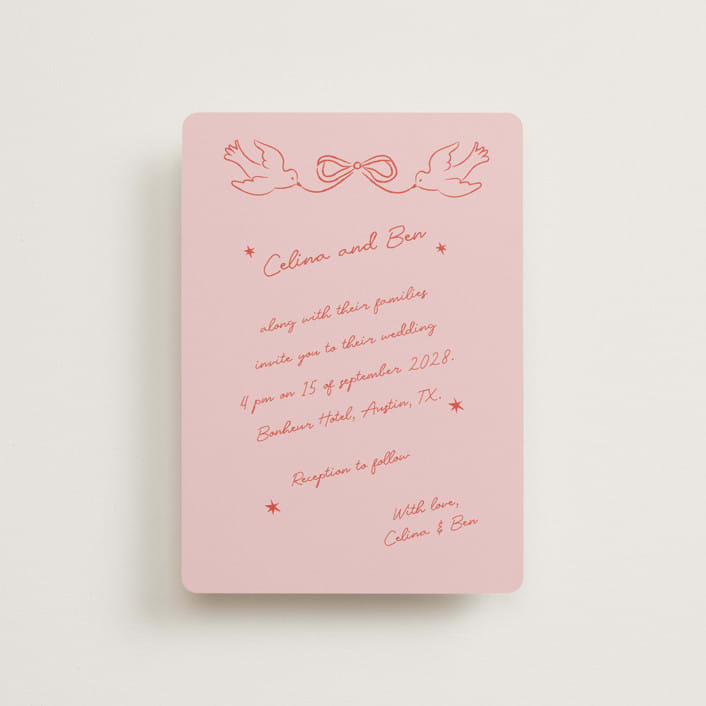 Celina and Ben
along with their families
invite you to their wedding
4 pm on 15 of september 2028.
Bonheur Hotel, Austin, TX.
Reception to follow
With love,
Celina & Ben